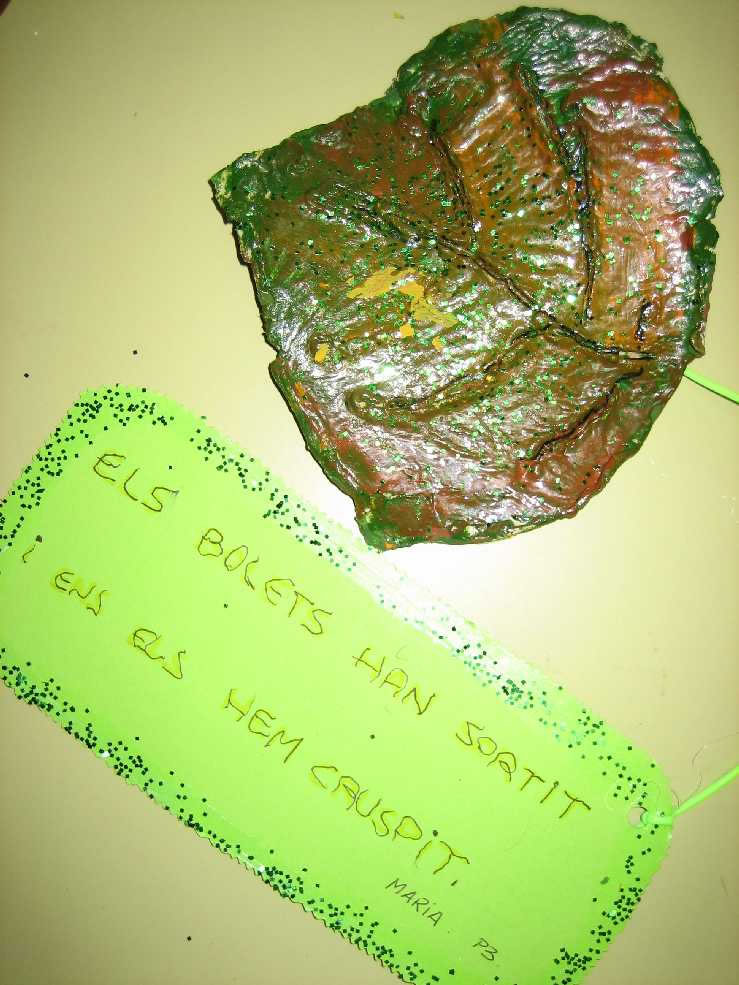 ELS BOLETS HAN SORTIT
i ENS ELS HEM CRUSPiT.
MARiA P3